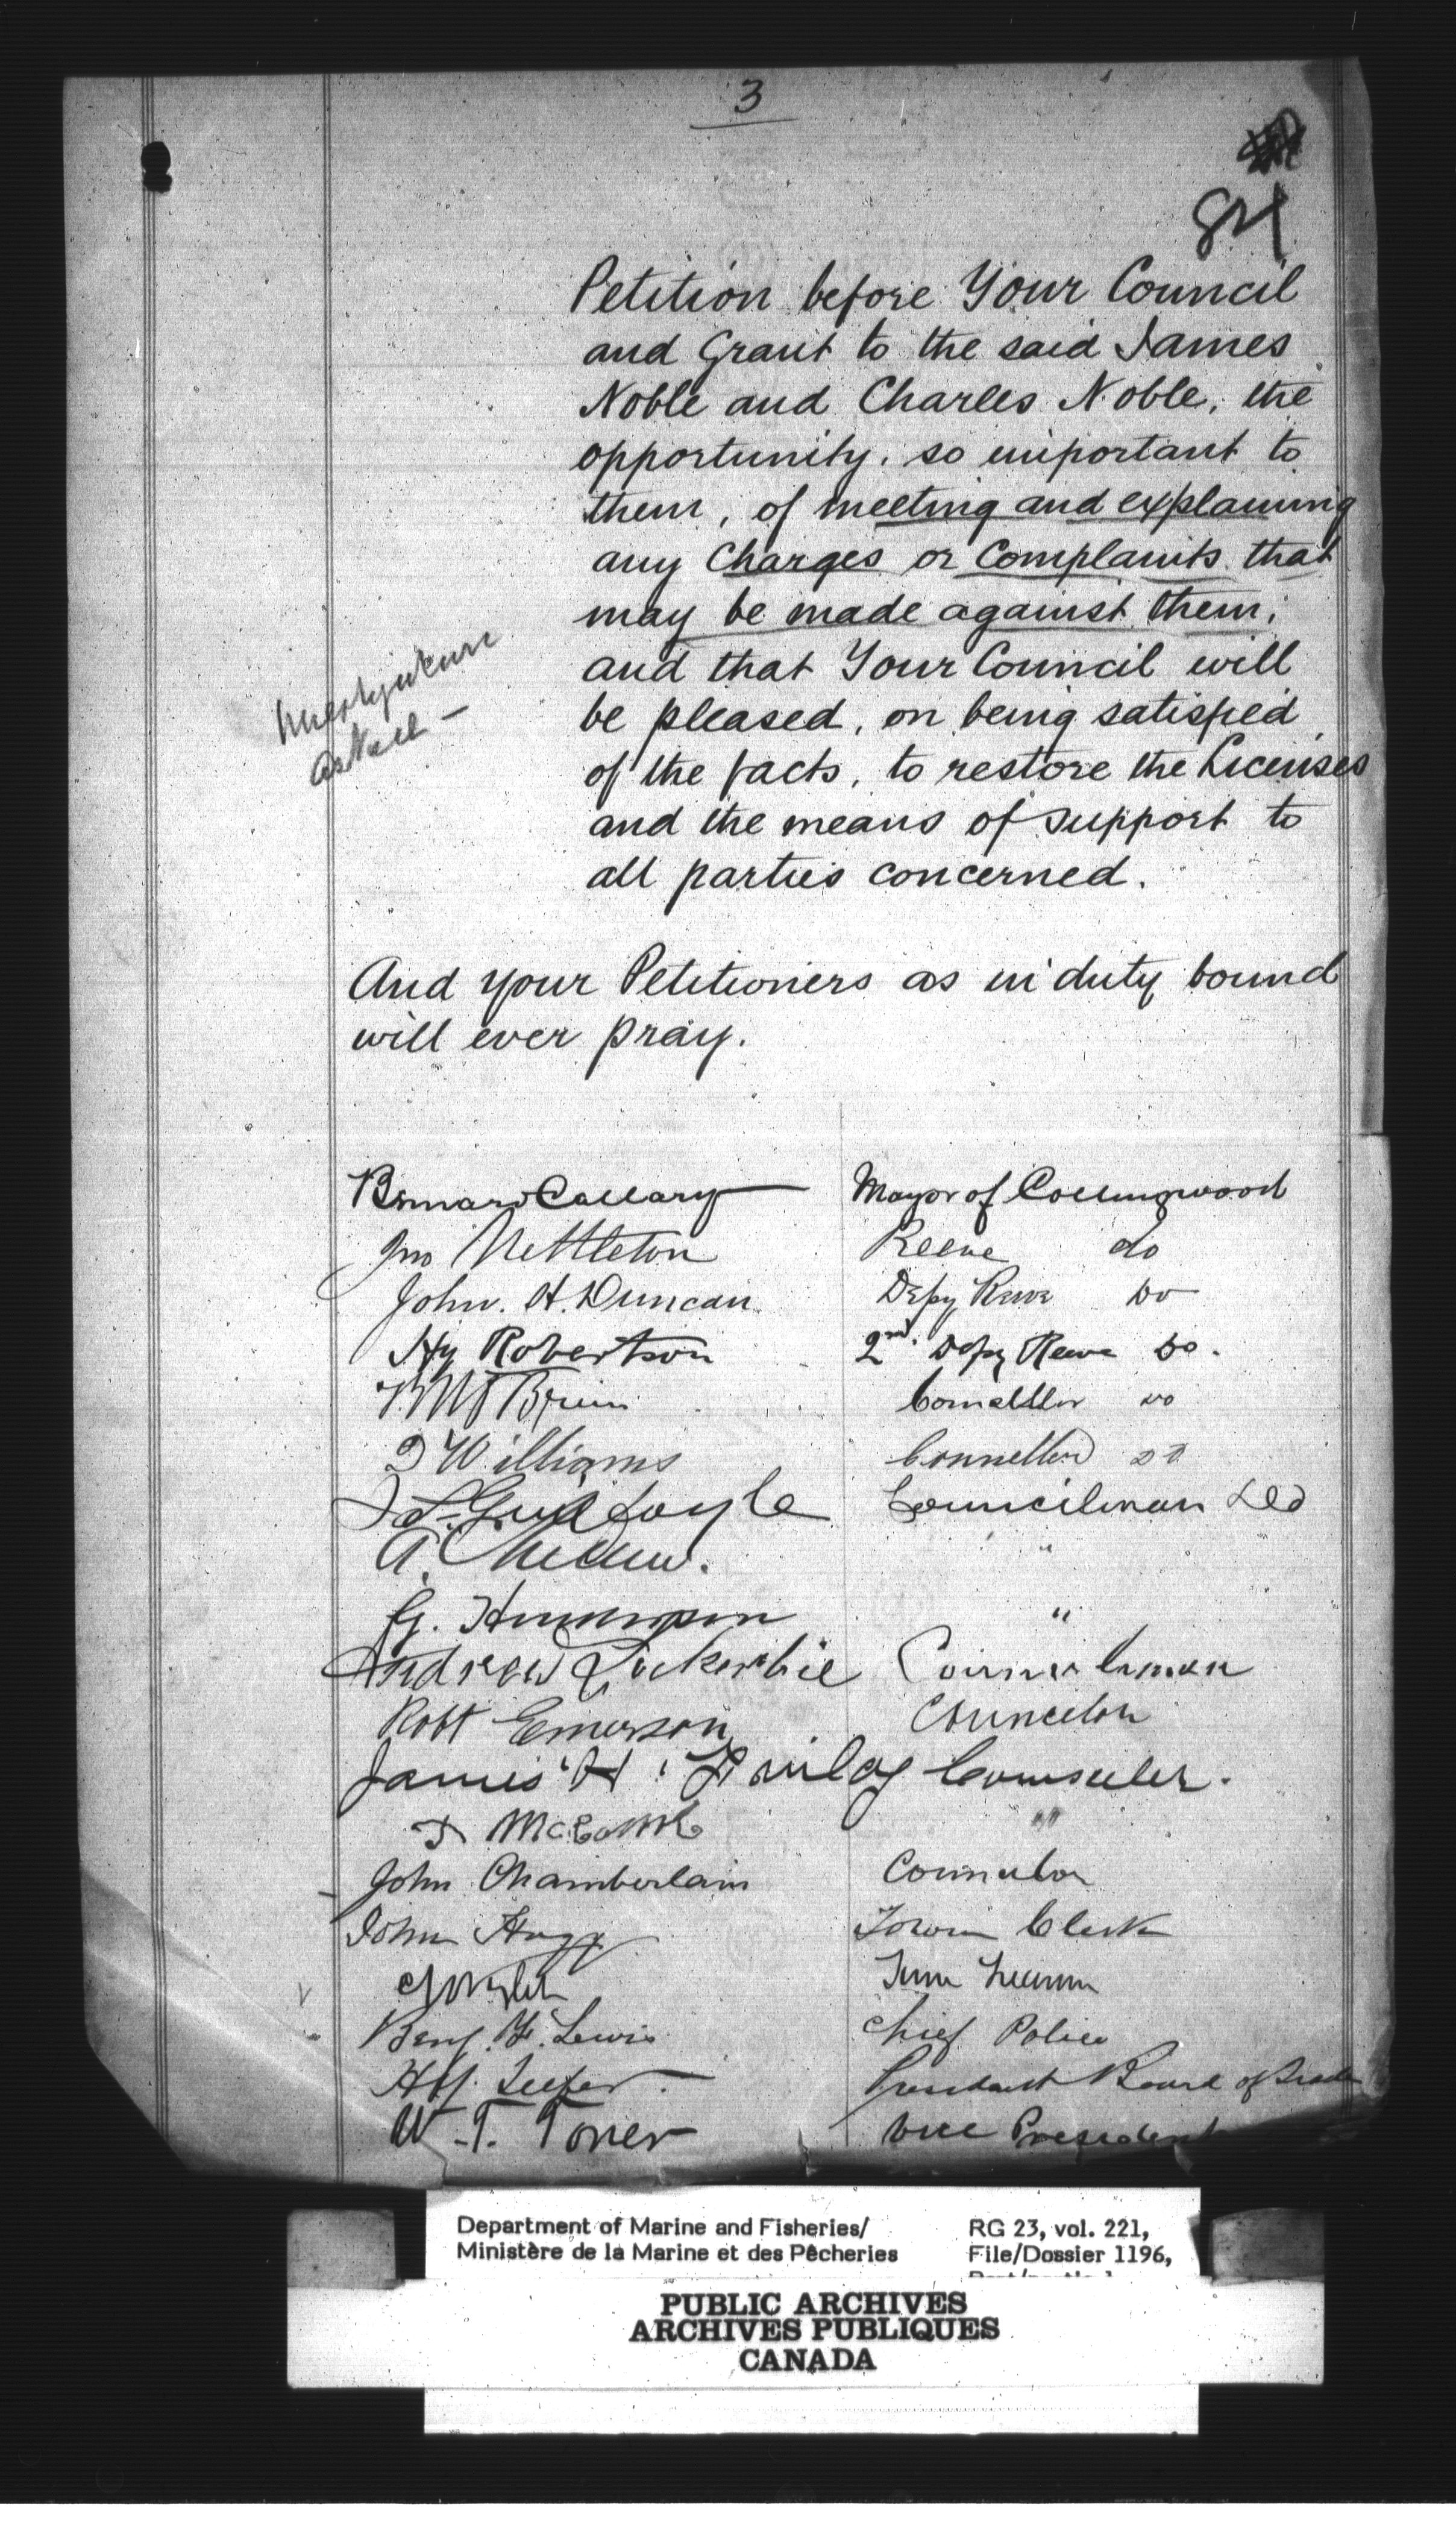 3
84
Petition before Your Council
and Grant to the said James
Noble and Charles Noble, the
opportunity, so important to
them, of meeting and explaining
any Charges or Complaints that
may be made against them;
and that Your Council will
be pleased, on being satisfied
of the facts, to restore the Licenses
and the means of support to
all parties concerned.
Investigation
asked —
And your Petitioners as in duty bound
will ever pray.
Bernard Callary Mayor of Collingwood
Jno Nettleton Reeve do
John. H. Duncan Depy Reeve Do
Hy Robertson 2nd Depy Reeve Do.
Councillor Do
Williams Councillor Do
Councilman Do
A. "
G. "
Andrew Lockerbie Councilman
Robt Emerson Councilor
James H. Councelor.
"
John Chamberlain Councilor
John Hogg Town Clerk
Town
Benj. Lewis Chief Police
President Board of Trade
W. T. Toner Vice President
Department of Marine and Fisheries/ RG 23, vol. 221,
Ministère de la Marine et des Pêcheries File/Dossier 1196,
PUBLIC ARCHIVES
ARCHIVES PUBLIQUES
CANADA